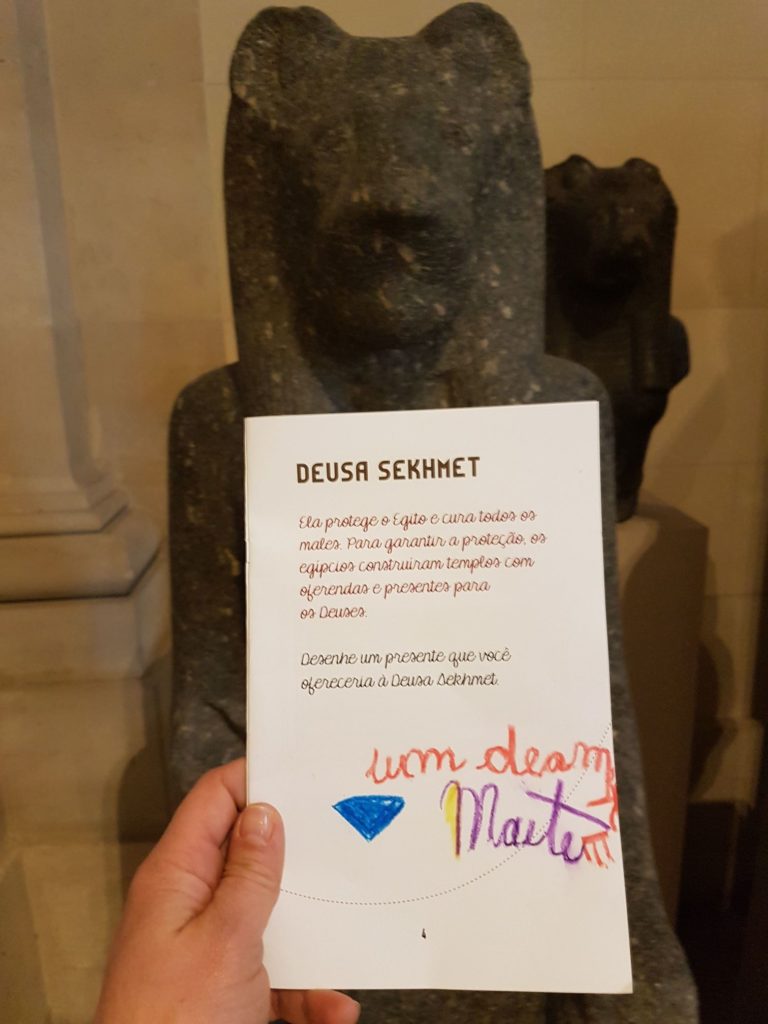 DEUSA SEKHMET
Ela protege o Egito e cura todos os
males. Para garantir a proteção, os
egípcios construíram templos com
oferendas e presentes para
os Deuses.
Desenhe um presente que você
ofereceria à Deusa Sekhmet.
um deam
Maite
4